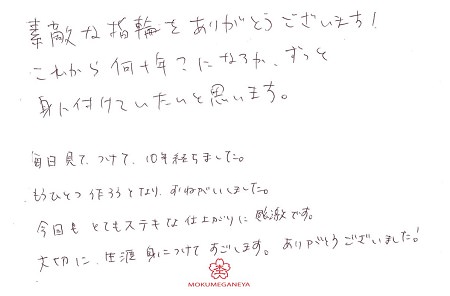 素敵な指輪をありがとうございます!
これから何十年?になるか、ずっと
身に付けていたいと思います。
毎日見て、つけて、10年経ちました。
もうひとつ作ろうとなり、おねがいしました。
今回も とてもステキな仕上がりに 感激です。
大切に、生涯 身につけて すごします。ありがとうございました!
MOKUMEGANEYA